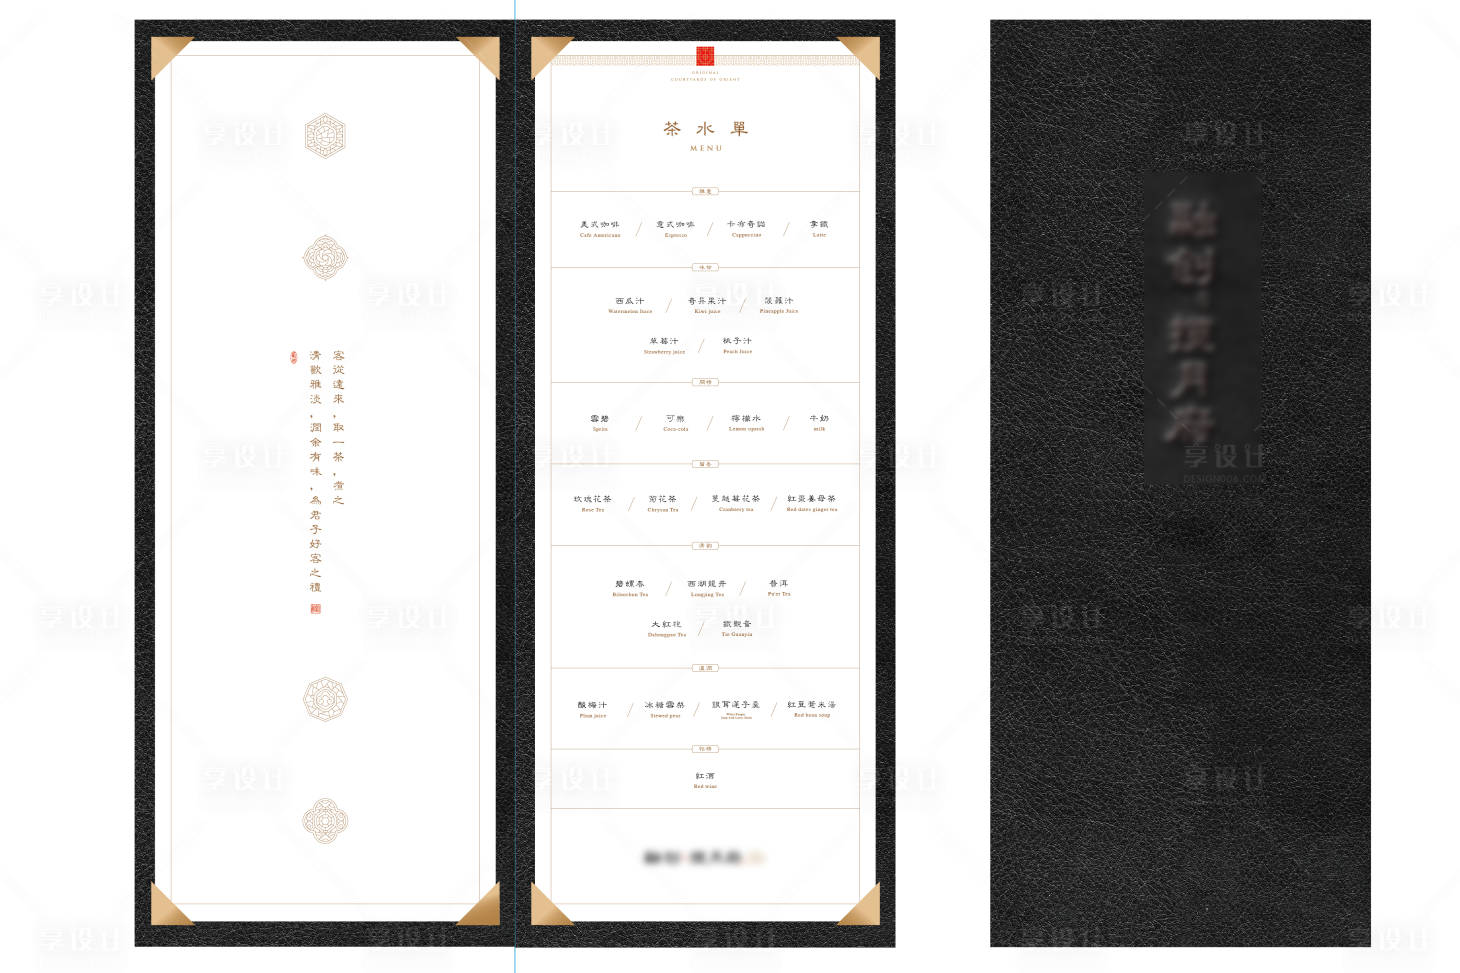 客從遠來,取一茶,煮之
清歡雅淡,潤余有味,為君子好客之禮
ORIGINAL
COURTYARDS OF ORIENT
茶水單
MENU
美式咖啡 / 意式咖啡 / 卡布奇諾 / 拿鐵
Café Americano Espresso Cappuccino Latte
西瓜汁 / 奇異果汁 / 菠蘿汁
Watermelon Juice Kiwi juice Pineapple Juice
草莓汁 / 桃子汁
Strawberry juice Peach Juice
雪碧 / 可樂 / 檸檬水 / 牛奶
Sprite Coca-cola Lemon squash milk
蘭香
玫瑰花茶 / 菊花茶 / 蔓越莓花茶 / 紅棗薑母茶
Rose Tea Chrysan Tea Cranberry tea Red dates ginger tea
清韵
碧螺春 / 西湖龍井 / 普洱
Biluochun Tea Longjing Tea Pu'er Tea
大紅袍 / 鐵觀音
Dahongpao Tea Tie Guanyin
溫潤
酸梅汁 / 冰糖雪梨 / 銀耳蓮子羹 / 紅豆薏米湯
Plum juice Stewed pear Red bean soup
紅酒
Red wine
享设计
DESIGN006.COM